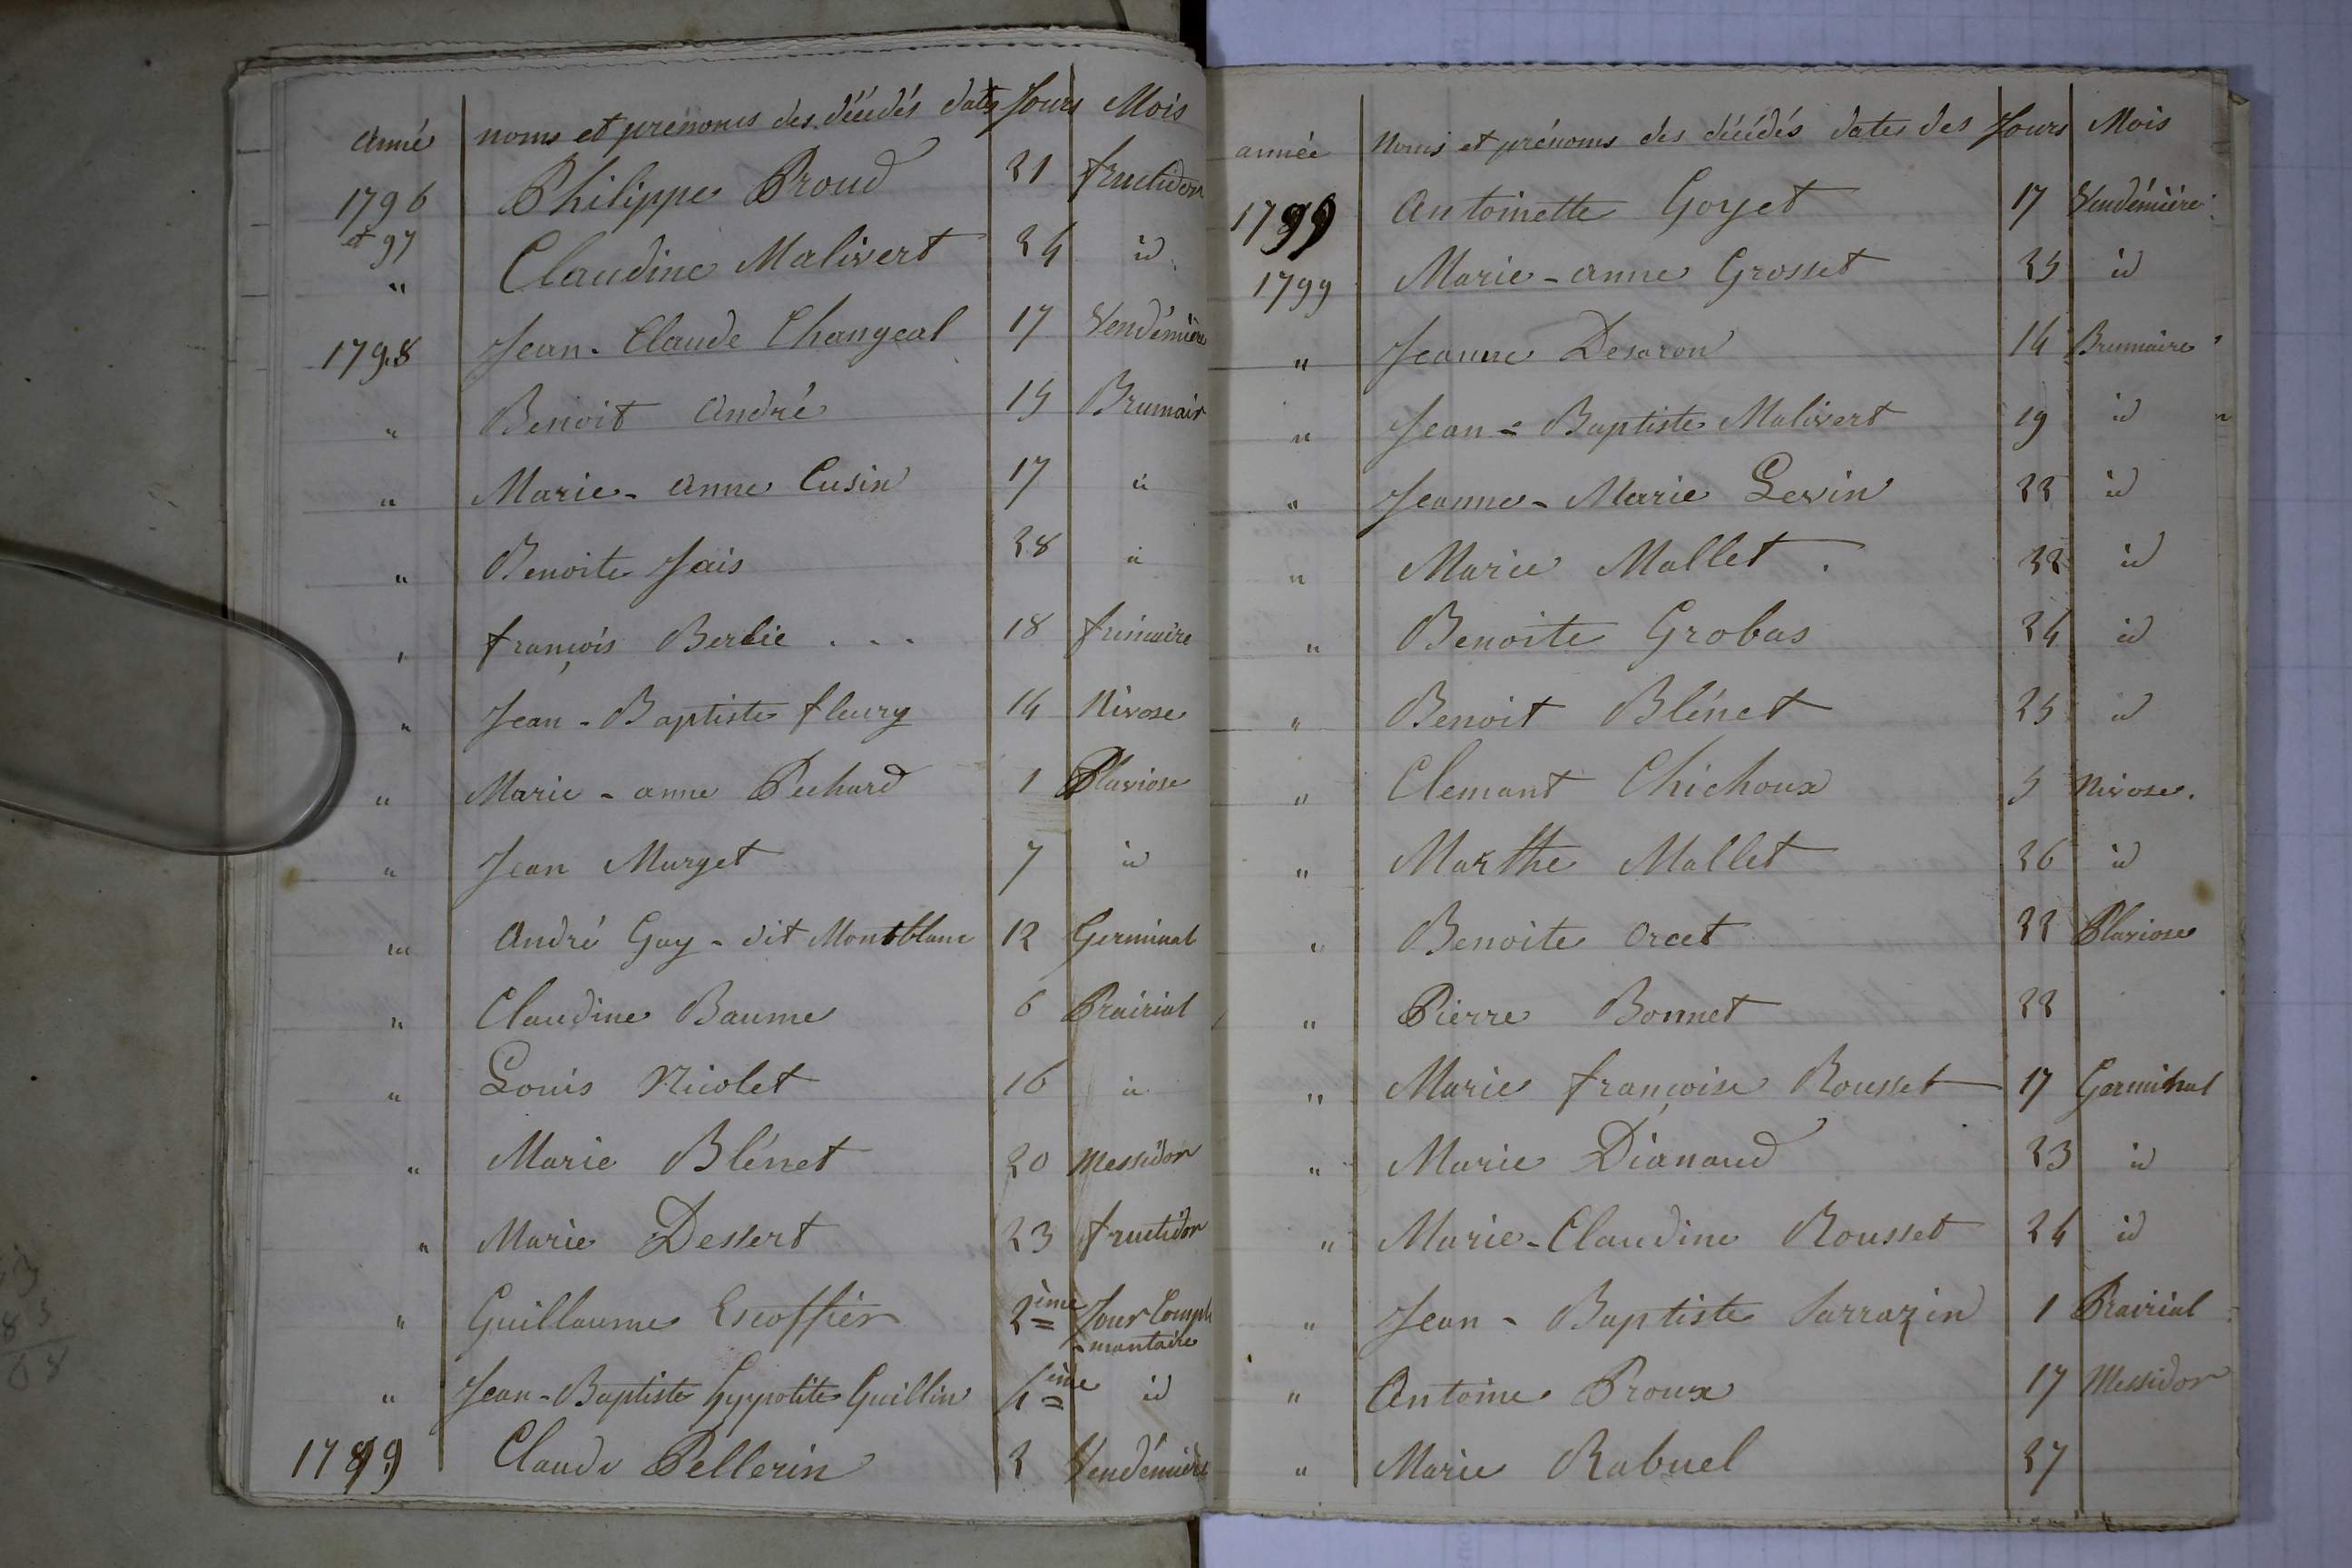 année noms et prénoms des décédés dates Jours Mois
1796 Philippe Proud 21 fructidor
et 97
" Claudine Malivert 24 id
1798 Jean-Claude Changeal 17 Vendémière
" Benoit André 15 Brumair
" Marie-anne Cusin 17 id
" Benoite Jais 28 id
" françois Berlie . . . 18 frimaire
" Jean-Baptiste fleury 14 Nivose
" Marie-anne Pechard 1 Pluviose
" Jean Murget 7 id
" André Guy-dit Montblanc 12 Germinal
" Claudine Baume 6 Prairial
" Louis Nicolet 16 id
" Marie Blénet 20 Messidor
" Marie Dessert 23 fructidor
" Guillaume Escoffier 2ème Jour Complé
-mantaire
" Jean-Baptiste hyppolite Guillin 4ème id
1799 Claude Pellerin 2 Vendémière
année Noms et prénoms des décédés dates des Jours Mois
1799 Antoinette Goyet 17 Vendémière
1799 Marie-anne Grosset 25 id
" Jeanne Desaron 14 Brumaire
" Jean-Baptiste Malivert 19 id
" Jeanne-Marie Levin 22 id
" Marie Mallet . 22 id
" Benoite Grobas 24 id
" Benoit Blénet 25 id
" Clemant Chichoux 5 Nivose.
" Marthe Mallet 26 id
" Benoite orcet 22 Pluviose
" Pierre Bonnet 22
" Marie françoise Rousset 17 Germinal
" Marie Dianand 23 id
" Marie-Claudine Rousset 24 id
" Jean-Baptiste Sarrazin 1 Prairial
" Antoine Proux 17 Messidor
" Marie Rabuel 27